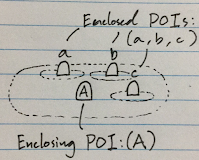 Enclosed POIs:
(a, b, c)
a
b
c
A
Enclosing POI: (A)